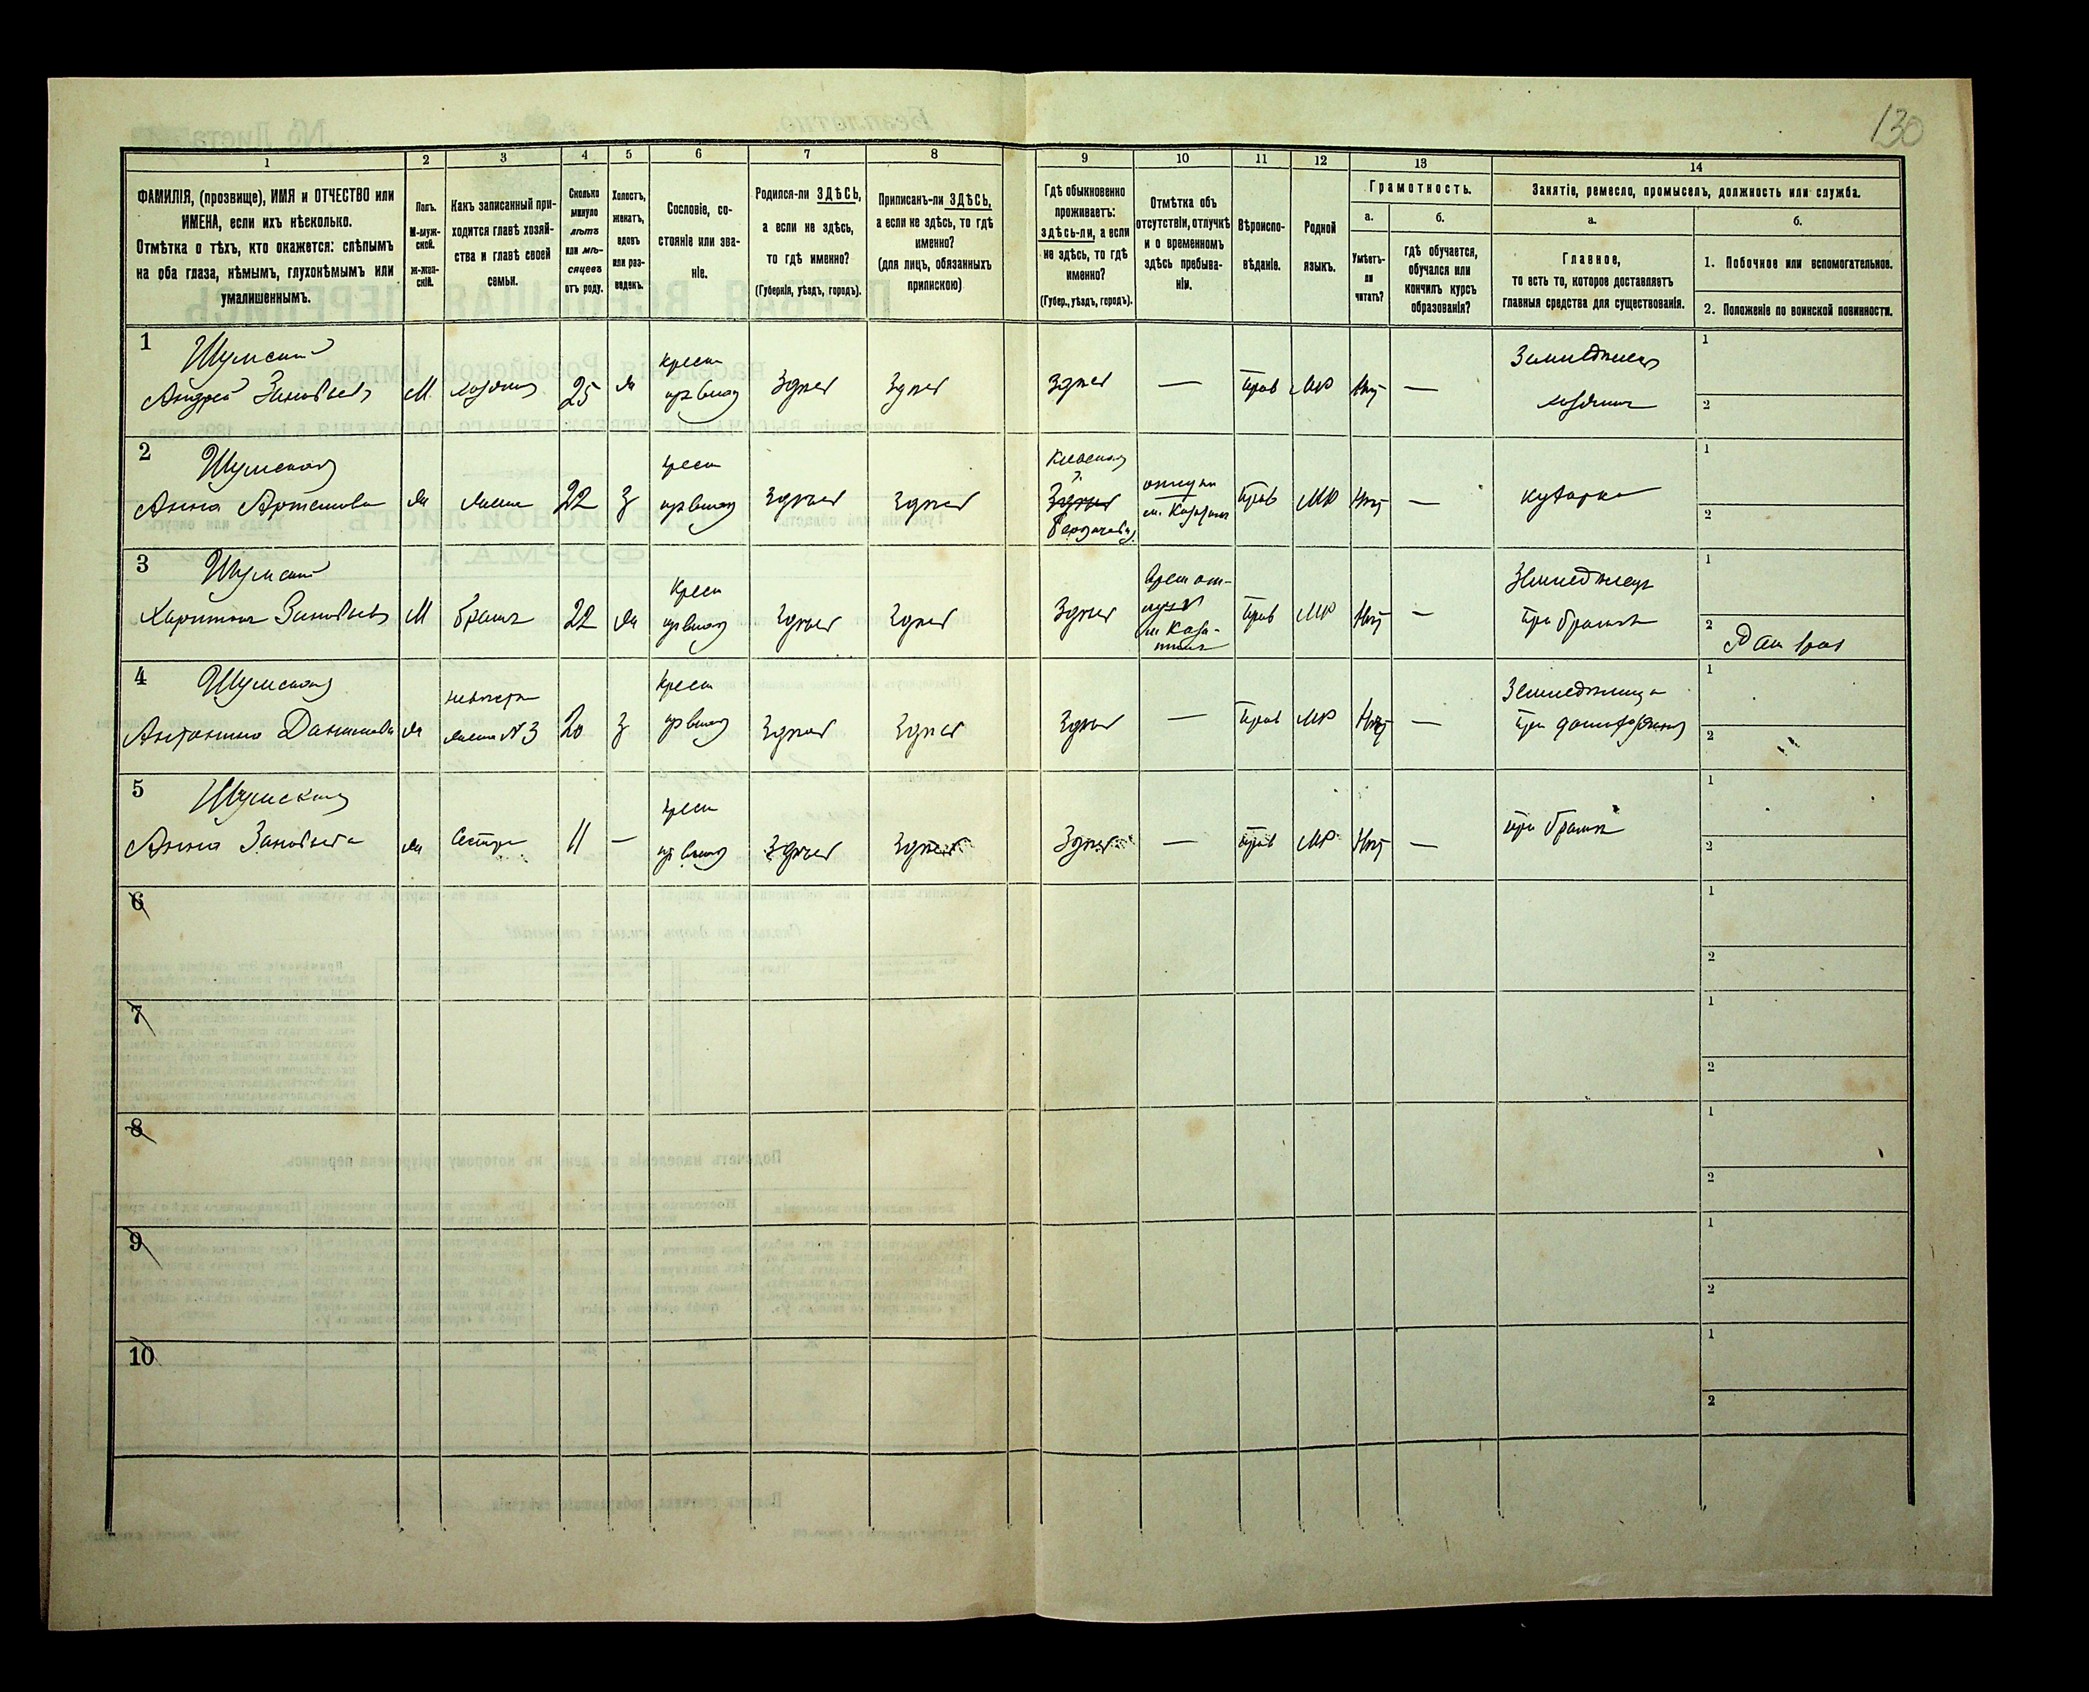 130
1
2
3
4
5
6
7
8
9
10
11
12
13
14
ФАМИЛІЯ, (прозвище), ИМЯ и ОТЧЕСТВО или
ИМЕНА, если ихъ нѣсколько.
Отмѣтка о тѣхъ, кто окажется: слѣпымъ
на оба глаза, нѣмымъ, глухонѣмымъ или
умалишеннымъ.
Полъ.
М-муж-
ской.
ж-жен-
скій.
Какъ записанный при-
ходится главѣ хозяй-
ства и главѣ своей
семьи.
Сколько
минуло
лѣтъ
или мѣ-
сяцевъ
отъ роду.
Холостъ,
женатъ,
вдовъ
или раз-
веденъ.
Сословіе, со-
стояніе или зва-
ніе.
Родился-ли ЗДѢСЬ,
а если не здѣсь,
то гдѣ именно?
(Губернія, уѣздъ, городъ).
Приписанъ-ли ЗДѢСЬ,
а если не здѣсь, то гдѣ
именно?
(для лицъ, обязанныхъ
припискою)
Гдѣ обыкновенно
проживаетъ:
здѣсь-ли, а если
не здѣсь, то гдѣ
именно?
(Губер., уѣздъ, городъ).
Отмѣтка объ
отсутствіи, отлучкѣ
и о временномъ
здѣсь пребыва-
ніи.
Вѣроиспо-
вѣданіе.
Родной
языкъ.
Грамотность.
а.
б.
Умѣетъ-
ли
читать?
гдѣ обучается,
обучался или
кончилъ курсъ
образованія?
Занятіе, ремесло, промыселъ, должность или служба.
а.
б.
Главное,
то есть то, которое доставляетъ
главныя средства для существованія.
1. Побочное или вспомогательное.
2. Положеніе по воинской повинности.
1
Шумский
Андрей Зиновьевъ
М
хозяинъ
25
ж
крест
Здѣсь
Здѣсь
Здѣсь
—
Прав
МР
Нѣт
—
Земледѣлецъ
хозяинъ
1
2
2
Шумская
Анна Артемова
ж
жена
22
З
крест
Здѣсь
Здѣсь
Киевская
Здѣсь
Прав
МР
Нѣт
—
кухарка
1
2
3
Шумский
Харитонъ Зиновьевъ
М
братъ
22
ж
Крест
Здѣсь
Здѣсь
Здѣсь
Прав
МР
Нѣт
—
Земледѣлецъ
При братѣ
1
2
4
Шумская
ж
невѣстка
жена №3
20
З
Крест
Здѣсь
Здѣсь
Здѣсь
—
Прав
МР
Нѣт
—
1
2
5
Шумская
Анна Зиновьева
ж
Сестра
11
—
крест
Здѣсь
Здѣсь
Здѣсь
—
Прав
МР
Нѣт
—
при братѣ
1
2
6
1
2
7
1
2
8
1
2
9
1
2
10
1
2